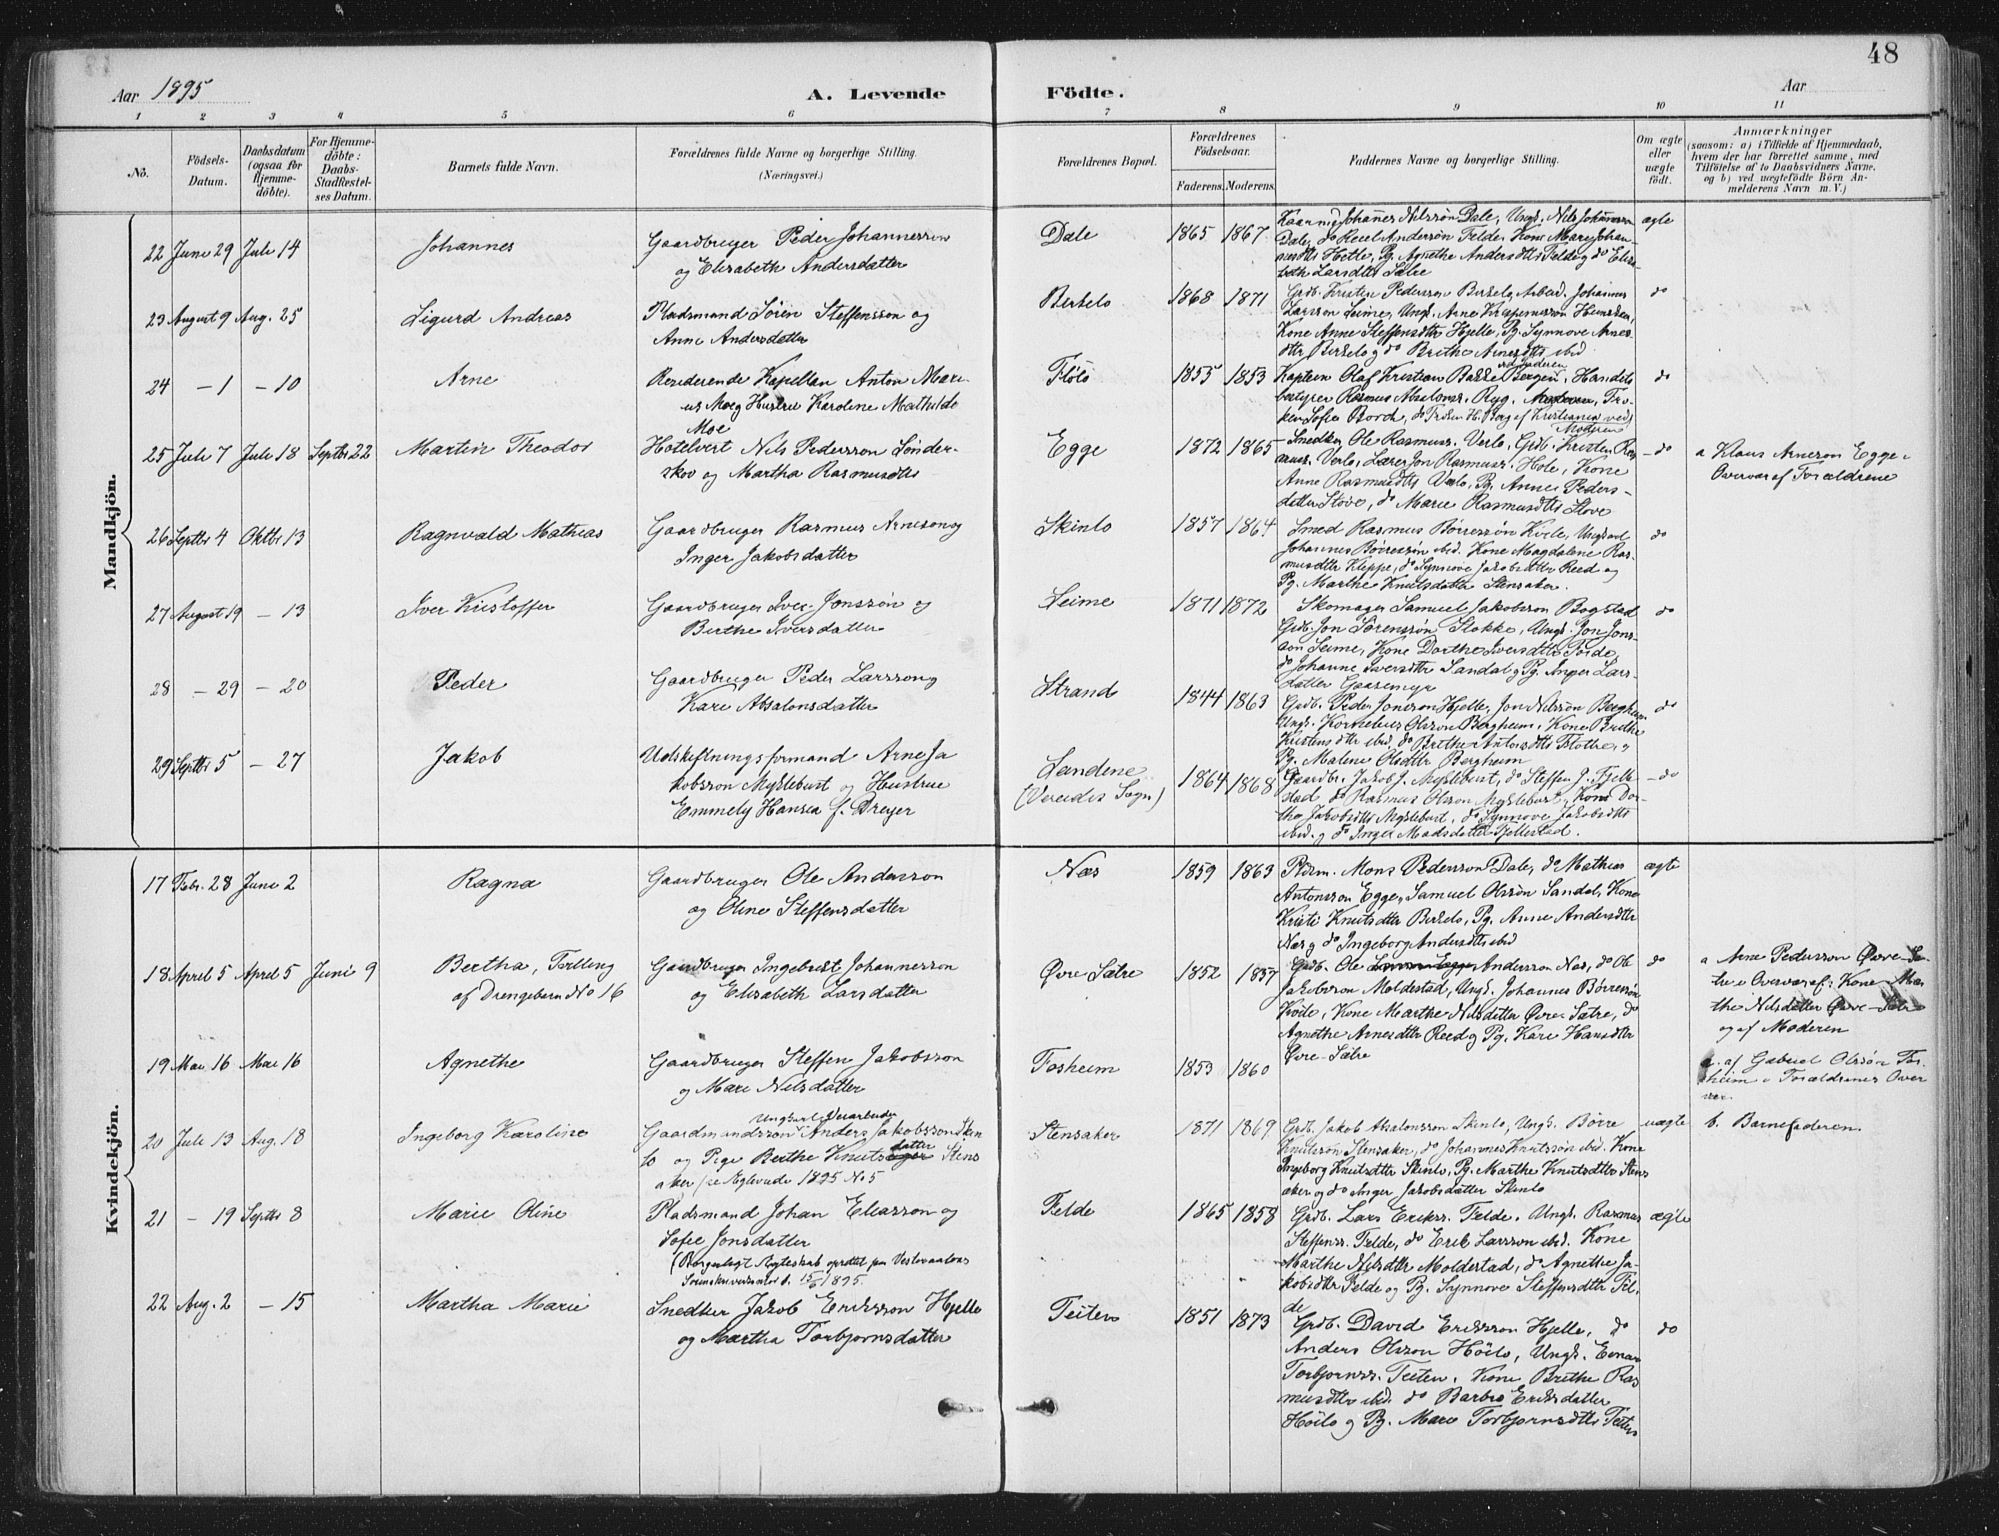 48
Aar 1895
A. Levende
Födte.
Aar
1 2 3 4 5 6 7 8 9 10 11
No.
Födsels-
Datum.
Daabsdatum
(ogsaa for
Hjemme-
döbte).
For Hjemme-
döbte:
Daabs-
Stadfæstel-
ses Datum.
Barnets fulde Navn.
Forældrenes fulde Navne og borgerlige Stilling.
(Næringsvei.)
Forældrenes Bopæl.
Forældrenes
Födselsaar.
Faderens. Moderens.
Faddernes Navne og borgerlige Stilling.
Om ægte
eller
uægte
födt.
Anmærkninger
(saasom: a) i Tilfælde af Hjemmedaab,
hvem der har forrettet samme, med
Tilföielse af to Daabsvidners Navne,
og b) ved uægtefödte Börn An-
melderens Navn m. V.)
Mandkjön.
22 Juni 29 Juli 14
Johannes
Gaardbruger Peder Johannesson
og Elisabeth Andersdatter
Dale
1865 1867
Kaarmd Johannes Nilssøn Dale, Ungk. Nils Johannesson
Dale, do Andersøn Felde, Kone Mari Johan-
nesdtr Hetle, Pg. Agnethe Andersdtr Felde og do Elisa-
beth Larsdtr Sætre
ægte
23 August 9 Aug. 25
Sigurd Andreas
Pladsmand Sören Steffensson og
Anne Andersdatter
Birkelo
1868 1871
Grdb. Kristen Pedersson Birkelo, Arbeid. Johannes
Larsson Seime, Ungk. Arne
Kone Anne Steffensdtr Hjelle, Pg. Synnove Arnes-
dtr Birkelo og do Brithe Arnesdtr ibid
do
24 – 1 – 10
Arne
Residerende Kapellan Anton Mari-
us Moeg Hustru Karoline Mathilde
Moe
Flölo
1855 1853
Kaptein Olaf Kristian Bakke Bergen, Handels-
bestyrer Rasmus Absalonss. Ryg, Frö-
ken Sofie Bord, do Fröken H. Berg af Kristiania ved
Moderen
do
25 Juli 7 Juli 18 Septbr 22
Martin Theodor
Hotelvert Nils Pedersson Sönder-
skov og Martha Rasmusdtr
Egge
1872 1865
Snedker Ole Rasmuss. Verlo, Grdb. Kristen Ras-
muss. Verlo, Lærer Jon Rasmuss. Hole, Kone
Anne Rasmusdtr Verlo, Pg. Anne Peders-
datter Stove, do Marie Rasmusdtr Stove
do
a Klaus Arneson Egge i
Overvær af Forældrene
26 Septbr 4 Oktbr 13
Ragnvald Mathias
Gaardbruger Rasmus Arneson og
Inger Jakobsdatter
Skinlo
1857 1864
Smed Rasmus Börressön Kvile, Ungkarl
Johannes Börressön ibid. Kone Magdalene Ras-
musdtr Kleppe, do Synnove Jakobsdtr Reed og
Pg. Marthe Knutsdatter Stensaker.
do
27 August 19 – 13
Iver Kristoffer
Gaardbruger Iver Jonssön og
Berthe Iversdatter
Seime
1871 1872
Skomager Samuel Jakobsson Bogstad
Grdb. Jon Sörenssön Stokke, Ungk. Jon Jons-
son Seime, Kone Dorthe Iversdtr Förde,
do Johanne Iversdtr Sandal og Pg. Inger Lars-
datter Gaasemyr
do
28 – 29 – 20
Peder
Gaardbruger Peder Larsson og
Kari Absalonsdatter
Strand
1844 1863
Grdb. Peder Jonsson Hjelle, Jon Nilsson Bergheim
Ungk. Kornelius Olsson Bergheim, Kone Brithe
Kristensdtr ibid, do Brithe Antonsdtr Flöthe, og
Pg. Malene Olsdtr Bergheim
do
29 Septbr 5 – 27
Jakob
Udskiftningsformand Arne Ja
kobsson Myklebust og Hustrue
Emmely Hansea f. Dreyer
Sandene
(Vereides Sogn)
1864 1868
Gaardbr. Jakob J. Myklebust, do Steffen J. Fjelle-
stad, do Rasmus Olsson Myklebust, Kone Dor-
thea Jakobsdtr Myklebust, do Synnove Jakobsdtr
ibid. og do Inger Madsdatter Fjellestad.
do
Kvindekjön.
17 Febr. 28 Juni 2
Ragna
Gaardbruger Ole Andersson
og Oline Steffensdatter
Næs
1859 1863
Pldsm. Mons Pedersson Dale, do Mathias
Antonsson Egge, Samuel Olssön Sandal, Kone
Kristi Knutsdtr Birkelo, Pg. Anne Andersdtr
Næs og do Ingeborg Andersdtr ibid
ægte
18 April 5 April 5 Juni 9
Bertha, Tvilling
af Drengebarn No 16
Gaardbruger Ingebret Johannesson
og Elisabeth Larsdatter
Övre Sætre
1852 1857
Grdb. Ole Andersson Næs, do Ole
Jakobsson Moldestad, Ungk. Johannes Börressön
Kvile, Kone Marthe Nilsdatter Övre Sætre, do
Agnethe Arnesdtr Reed og Pg. Kari Hansdtr
Övre-Sætre
do
a Arne Pedersson Övre-Sæ-
tre i Overvær af: Kone Mar-
the Nilsdatter Övre-Sætre
og af Moderen
19 Mai 16 Mai 16
Agnethe
Gaardbruger Steffen Jakobsson
og Mari Nilsdatter
Fosheim
1853 1860
a. af Gabriel Olssön Fos-
heim i Forældrenes Over
vær.
20 Juli 13 Aug. 18
Ingeborg Karoline
Ungkarl Veiarbeider
Gaardmandssön Anders Jakobsson Skin
lo og Pige Berthe Knutsdatter Stens
aker (se Æglevnde 1895 No 5
Stensaker
1871 1869
Grdb. Jakob Absalonsson Skinlo, Ungk. Börre
Knutsson Stensaker, do Johannes Knutssön ibid. Kone
Ingeborg Knutsdtr Skinlo, Pg. Marthe Knutsdtr Stens
aker og do Inger Jakobsdatter Skinlo
uægte
b. Barnefaderen.
21 – 19 Septbr 8
Marie Oline
Pladsmand Johan Eliasson og
Sofie Jonsdatter
(Borgerligt Ægteskab oprettet
15/ 1895.
Felde
1865 1858
Grdb. Lars Erikss. Felde, Ungk. Rasmus
Steffenss. Felde, do Erik Larsson ibid. Kone
Marthe Nilsdtr Moldestad, do Agnethe Ja-
kobsdtr Felde og Pg. Synnove Steffensdtr Fel-
de
ægte
22 Aug. 2 – 15
Martha Marie
Snedker Jakob Eriksson Hjelle
og Martha Torbjornsdatter
Teiten
1851 1873
Grdb. David Eriksson Hjelle, do
Anders Olsson Höilo, Ungk. Einar
Torbjornss. Teiten, Kone Brithe Ras
musdtr ibid. do Barbro Eriksdatter
Höilo og Pg. Mari Torbjornsdtr Teiten
do